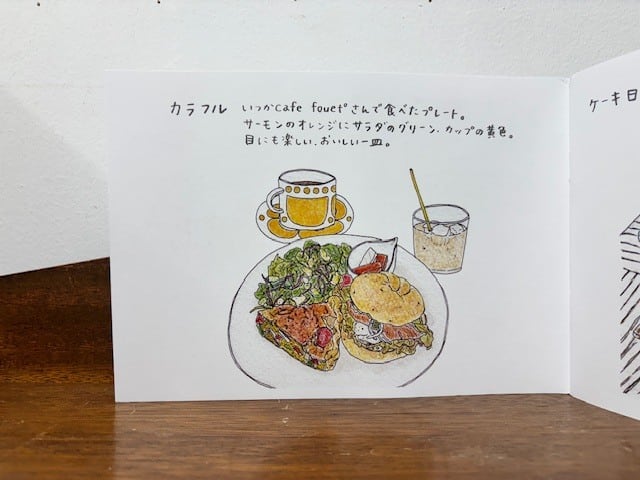 カラフル いつかCafe fouet°さんで食べたプレート。
サーモンのオレンジにサラダのグリーン、カップの黄色。
目にも楽しい、おいしい一皿。
ケーキ日